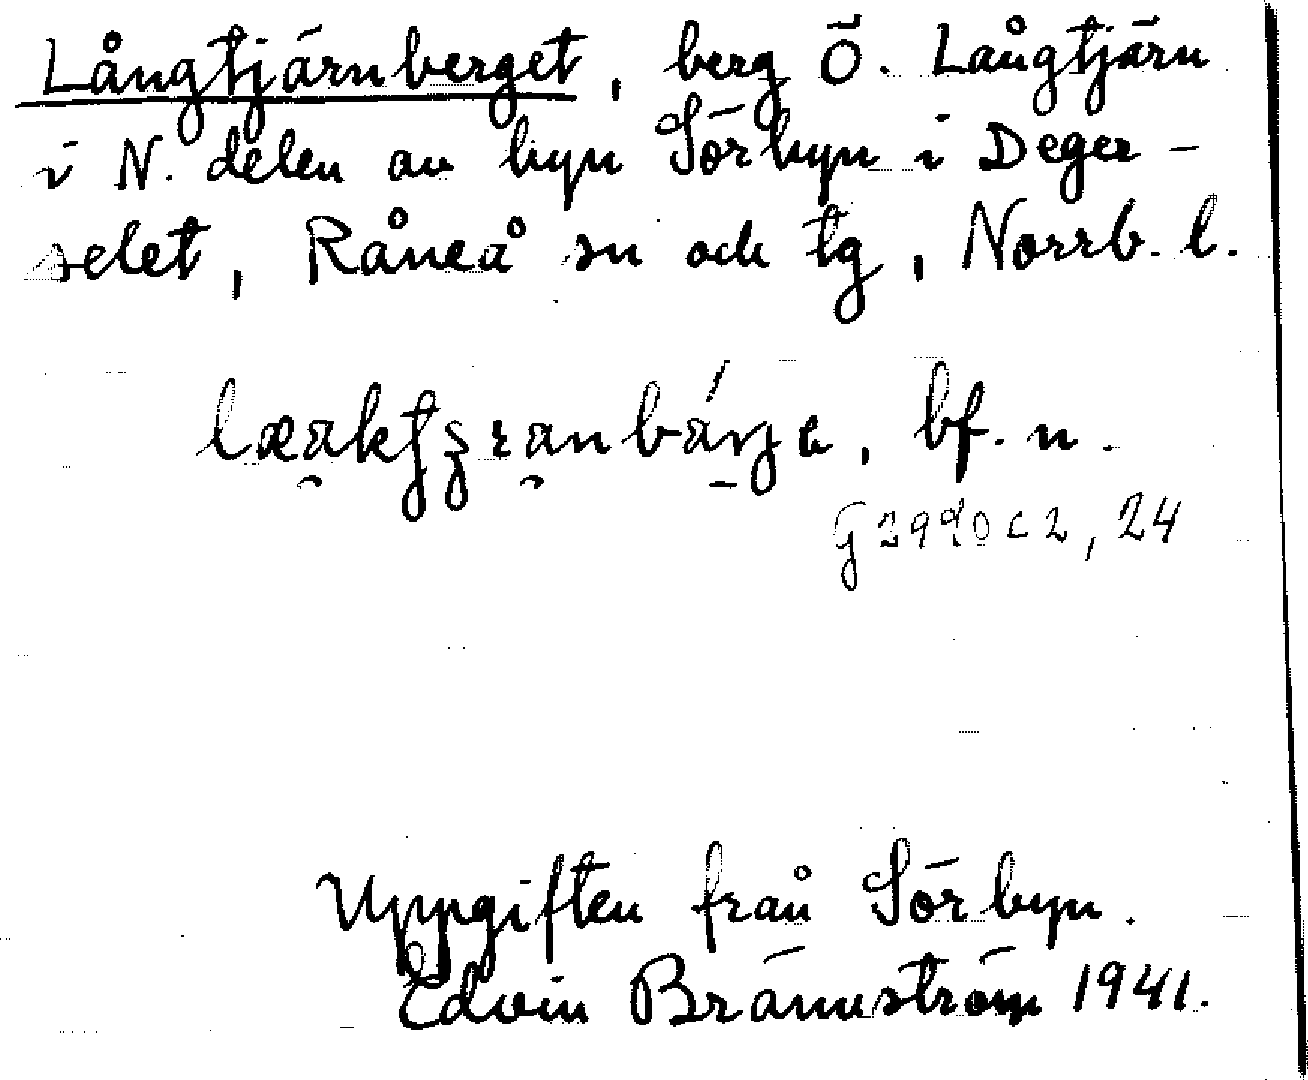 Långtjärnberget, berg Ö. Långtjärn
i N. delen av byn Sörbyn i Deger-
selet, Råneå sn och tg, Norrb. l.
bf. n.
24
Uppgiften från Sörbyn.
Edvin Brännström 1941.